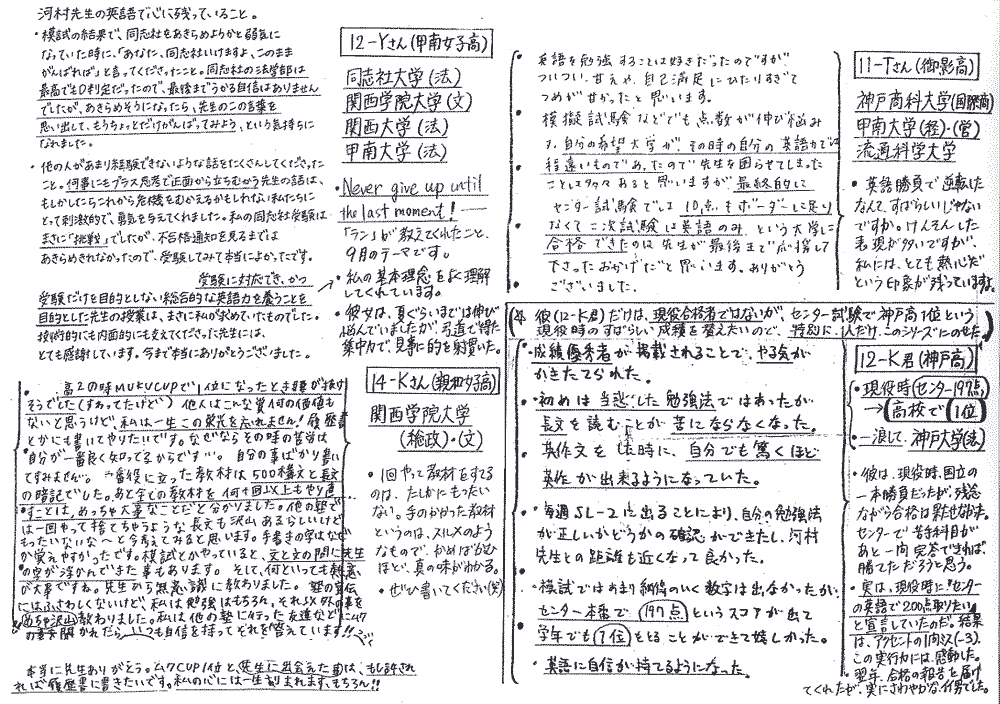 河村先生の英語で心に残っていること。
・模試の結果で、同志社をあきらめようかと弱気に
なっていた時に、「あなた、同志社いけますよ、このまま
がんばれば」と言ってくださったこと。同志社の法学部は
最高でもD判定だったので、最後までうかる自信はありません
でしたが、あきらめそうになったら、先生のこの言葉を
思い出して、もうちょっとだけがんばってみよう、という気持ちに
なれました。
・他の人があまり経験できないような話をたくさんしてくださった
こと。何事にもプラス思考で正面から立ちむかう先生の話は、
もしかしたらこれから危機をむかえるかもしれない私たちに
とって刺激的で、勇気を与えてくれました。私の同志社受験は
まさに「挑戦」でしたが、不合格通知を見るまでは
あきらめきれなかったので、受験してみて本当によかったです。
受験に対応でき、かつ
受験だけを目的としない総合的な英語力を養うことを
目的とした先生の授業は、まさに私が求めていたものでした。
技術的にも内面的にも支えてくださった先生には、
とても感謝しています。今まで本当にありがとうございました。
12-Yさん(甲南女子高)
同志社大学(法)
関西学院大学(文)
関西大学(法)
甲南大学(法)
・Never give up until
the last moment!
「ラン」が教えてくれたこと、
9月のテーマです。
・私の基本理念をよく理解
してくれています。
・彼女は、夏ぐらいまでは伸び
悩んでいましたが、弓道で得た
集中力で、見事に的を射貫いた。
・高2の時MUKUCUPで1位になったとき腰が抜け
そうでした(すわってたけど) 他人はこんな賞何の価値も
ないと思うけど、私は一生この栄光を忘れません!履歴書
とかにも書いてやりたいです。なぜならその時の苦労は
自分が一番良く知ってるからです…。自分の事ばかり書い
てすみません。一番役に立った教材は、500構文と長文
の暗記でした。あと全ての教材を何十回以上もやり直
すことは、めっちゃ大事なことだと分かりました。他の塾で
は一回やって捨てちゃうような長文も沢山あるらしいけど
もったいないな〜と今考えてみると思います。手書きの字はなぜ
か覚えやすかったです。模試とかやっていると、文と文の間に先生
の字が浮かんできた事もあります。そして、何といっても熱意
が大事ですね。先生から無意識に教わりました。塾の宣伝
にはふさわしくないけど、私は勉強はもちろん、それ以外の事を
めちゃ沢山教わりました。私は他の塾に行った友達などにムク
の事を聞かれたら、いつも自信を持ってそれを答えています!!
本当に先生ありがとう。ムクCUP1位と、先生に出会えた事は、もし許され
れば履歴書に書きたいです。私の心には一生刻まれます、もちろん!!
14-Kさん(親和女子高)
関西学院大学
(総政)・(文)
・1回やった教材をする
のは、たしかにもったい
ない。手のかかった教材
というのは、スルメのよう
なもので、かめばかむ
ほど、真の味がわかる。
・ぜひ書いてください(笑)
・英語を勉強することは好きだったのですが
ついつい、甘えや、自己満足にひたりすぎて
つめが甘かったと思います。
・模擬試験などでも点数が伸び悩み
又、自分の希望大学が、その時の自分の英語力では
程遠いものであったので先生を困らせてしまった
ことも多々あると思いますが最終的に
センター試験では10点もボーダーに足り
なくて二次試験は英語のみという大学に
合格できたのは先生が最後まで応援して
下さったおかげだと思います。ありがとう
ございました。
11-Tさん(御影高)
神戸商科大学(国際商)
甲南大学(経)・(営)
流通科学大学
・英語勝負で逆転した
なんて、すばらしいじゃない
ですか。けんそんした
表現が多いですが、
私には、とても熱心だ
という印象が残っていますよ。
(※ 彼(12-K君)だけは、現役合格者ではないが、センター試験で神戸高1位という
現役時のすばらしい成績を誉えたいので、特別に、1人だけ、このシリーズにのせた。)
・成績優秀者が掲載されることで、やる気が
かきたてられた。
・初めは当惑した勉強法ではあったが
長文を読むことが苦にならなくなった。
・英作文をした時に、自分でも驚くほど
英作が出来るようになっていた。
・毎週SL-2に出ることにより、自分の勉強法
が正しいかどうかの確認ができたし、河村
先生との距離も近くなって良かった。
・模試ではあまり納得のいく数字は出なかったが、
センター本番で197点というスコアが出て
学年でも1位をとることができて嬉しかった。
・英語に自信が持てるようになった。
12-K君(神戸高)
・現役時(センター197点)
→高校で1位
・一浪して、神戸大学(法)
・彼は、現役時、国立の
一本勝負だったが、残念
ながら合格は果せなかった。
センターで苦手科目が
あと一問完答できれば、
勝てただろうと思う。
・実は、現役時に「センター
の英語で200点取りたい」
と宣言していたのだ。結果
は、アクセントの1問ミス(-3)。
この実行力には、感動した。
翌年、合格の報告を届け
てくれたが、実にさわやかな1男でした。